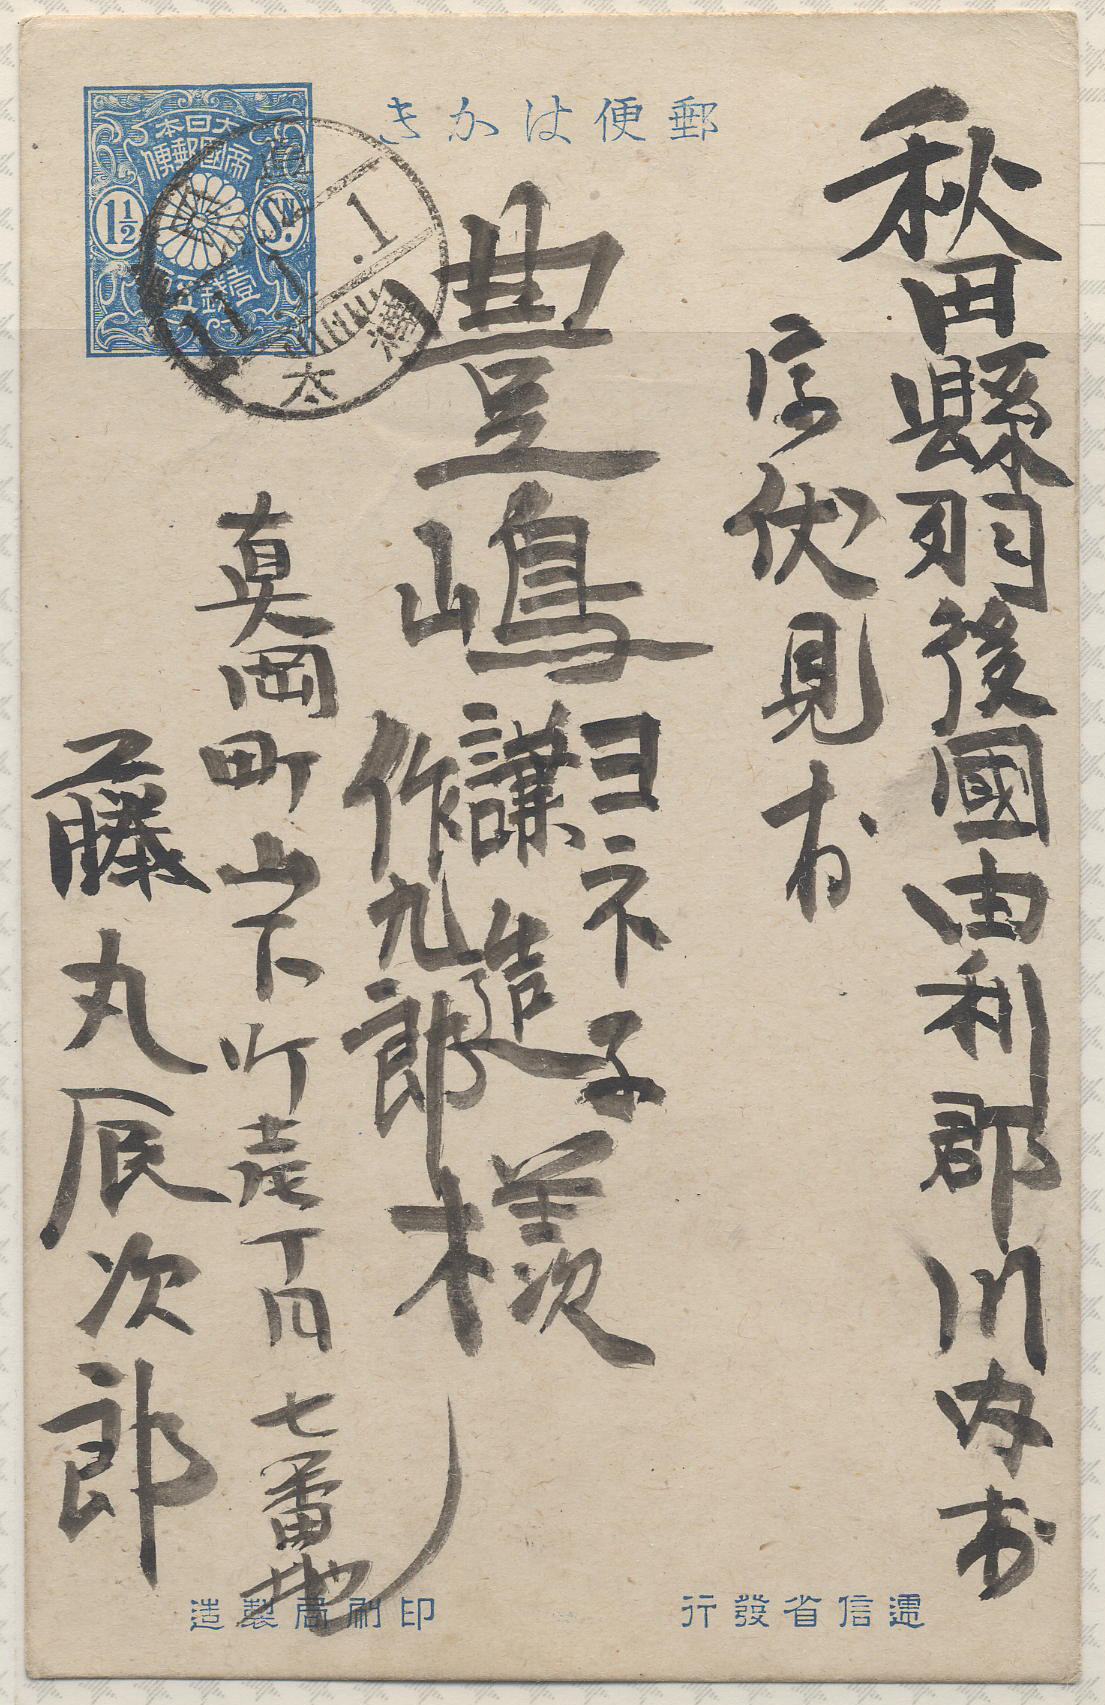 郵便はかき
大日本
帝國郵便
1½ Sn.
壹錢五厘
真岡
11.1.1
樺太
秋田縣羽後國由利郡川内村
字伏見村
ヨネ子
豊嶋謙造様
作九郎様
真岡町山下町壱丁目七番地
工藤丸辰次郎
遞信省發行
印刷局製造